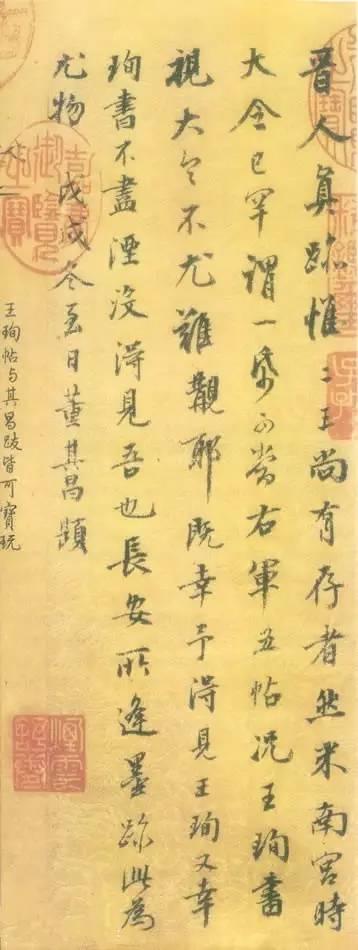 晉人真跡惟二王尚有存者然米南宮時
大令已罕謂一紙可當右軍五帖況王珣書
視大令不尤難覯耶既幸予得見王珣又幸
珣書不盡湮沒得見吾也長安所逢墨跡此為
尤物 戊戌冬至日董其昌題
王珣帖与其昌跋皆可寶玩
嘉慶御覽之寶